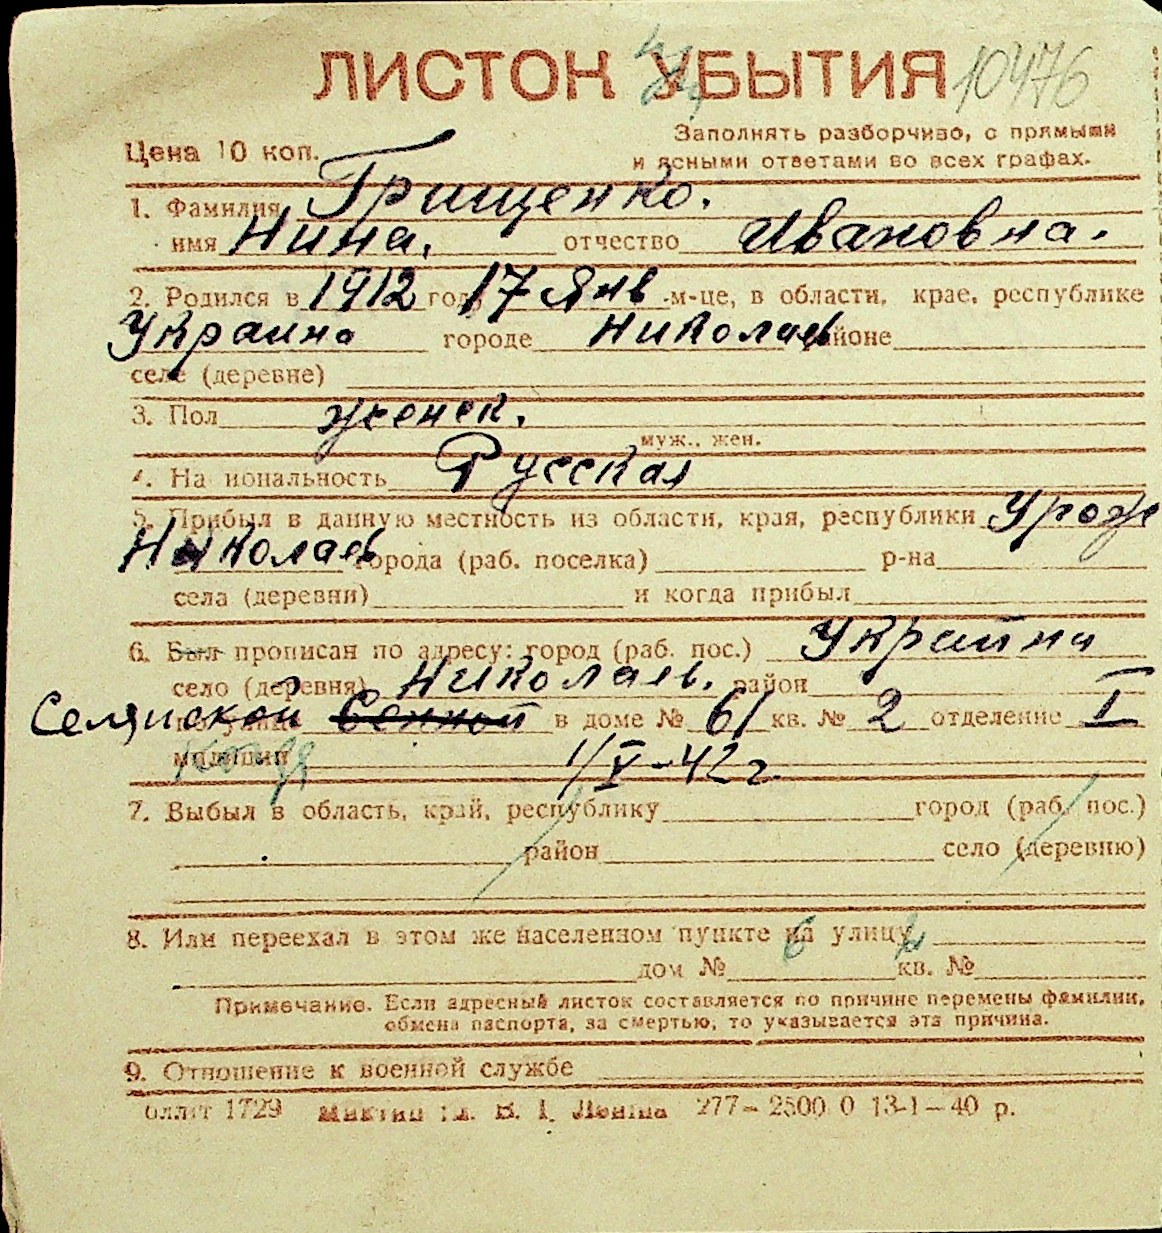 ЛИСТОК УБЫТИЯ 10476
Цена 10 коп.
Заполнять разборчиво, с прямыми
и ясными ответами во всех графах.
1. Фамилия Грищенко.
имя Нина. отчество Ивановна.
2. Родился в 1912 году 17 Янв м-це, в области, крае, республике
Украина городе Николаев районе
селе (деревне)
3. Пол женск.
муж., жен.
4. Национальность Русская
5. Прибыл в данную местность из области, края, республики Урож
Николаев города (раб. поселка) р-на
села (деревни) и когда прибыл
6. Был прописан по адресу: город (раб. пос.) Украина
село (деревня) Николаев. район
по улице Сенной в доме № 61 кв. № 2 отделение I
милиции 1/V-42 г.
7. Выбыл в область, край, республику город (раб. пос.)
район село (деревню)
8. Или переехал в этом же населенном пункте на улицу
дом № кв. №
Примечание. Если адресный листок составляется по причине перемены фамилии,
обмена паспорта, за смертью, то указывается эта причина.
9. Отношение к военной службе
1729 277-2500 0 13-1-40 р.